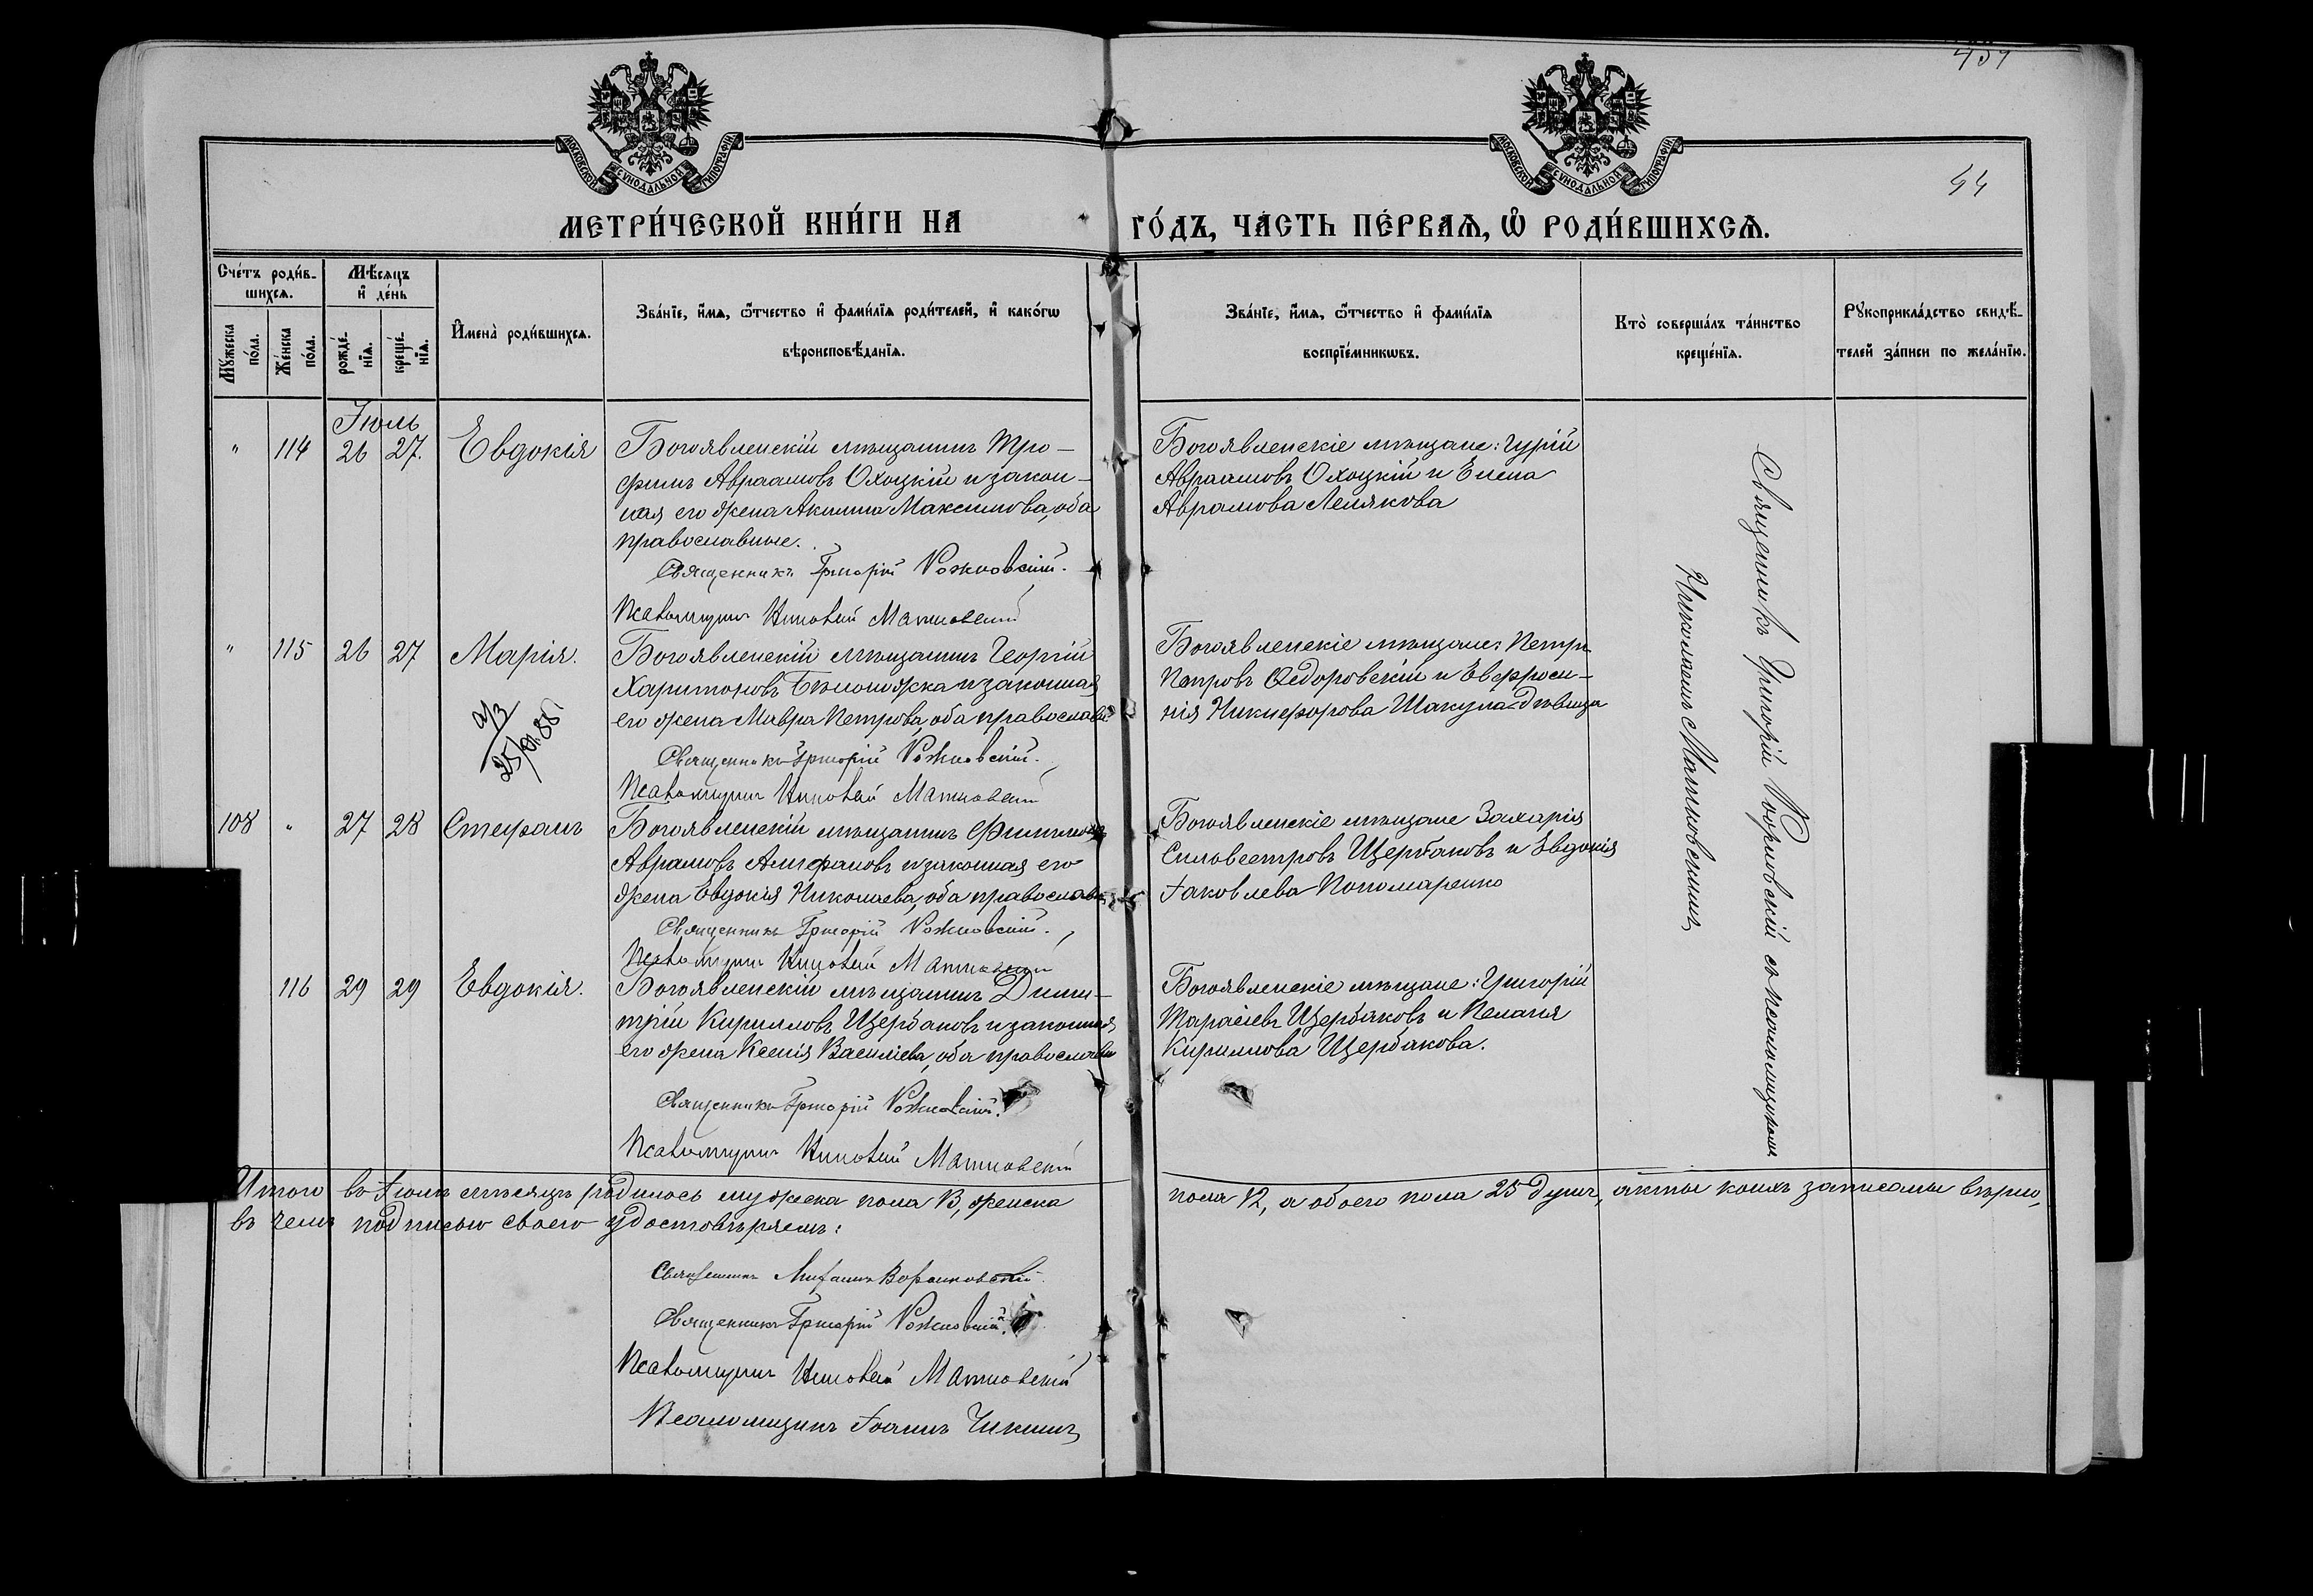 44
МОСКОВСКОЙ СѴНОДАЛЬНОЙ ТИПОГРАФІИ.
МОСКОВСКОЙ СѴНОДАЛЬНОЙ ТИПОГРАФІИ.
МЕТРИ́ЧЕСКОЙ КНИ́ГИ НА ГО́ДЪ, ЧА́СТЬ ПЕ́РВАѦ, Ѡ҆ РОДИ́ВШИХСѦ.
Сче́тъ роди́в-
шихсѧ.
Мꙋ́жеска по́ла.
Же́нска по́ла.
Мѣ́сѧцъ
и҆ де́нь
рожде́-нїѧ.
креще́-нїѧ.
И҆мена̀ роди́вшихсѧ.
Зва́нїе, и҆́мѧ, ѻ҆́тчество и҆ фами́лїѧ роди́телей, и҆ како́гѡ
вѣроисповѣ́данїѧ.
Зва́нїе, и҆́мѧ, ѻ҆́тчество и҆ фами́лїѧ
воспрїе́мникѡвъ.
Кто̀ соверша́лъ та́инство
креще́нїѧ.
Рꙋкоприкла́дство свидѣ́-
телей за́писи по жела́нїю.
Іюль
" 114 26 27. Евдокія
Богоявленскій мѣщанинъ Тро-
фимъ Авраамовъ Охоцкій и закон-
ная его жена Акилина Максимова, оба
православные.
Священникъ Григорій Рожновскій.
Псаломщикъ Николай Матковскій
Богоявленскіе мѣщане: Гурій
Авраамовъ Охоцкій и Елена
Аврамова Лелякова
" 115 26 27 Марія.
Богоявленскій мѣщанинъ Георгій
Харитоновъ Бѣлоножка и законная
его жена Мавра Петрова, оба православн.
Священникъ Григорій Рожновскій.
Псаломщикъ Николай Матковскій
Богоявленскіе мѣщане: Петръ
Петровъ Ѳедоровскій и Евфроси-
нія Никифорова Шакула - дѣвица
108 " 27 28 Стефанъ
Богоявленскій мѣщанинъ Филимонъ
Аврамовъ Алифановъ и законная его
жена Евдокія Николаева, оба православн.
Священникъ Григорій Рожновскій.
Псаломщикъ Николай Матковскій
Богоявленскіе мѣщане Захарія
Сильвестровъ Щербаковъ и Евдокія
Іаковлева Пономаренко
116 29 29 Евдокія.
Богоявленскій мѣщанинъ Дими-
трій Кирилловъ Щербаковъ и законная
его жена Ксенія Василіева, оба православн
Священникъ Григорій Рожновскій.
Псаломщикъ Николай Матковскій
Богоявленскіе мѣщане: Григорій
Тарасіевъ Щербаковъ и Пелагія
Кириллова Щербакова.
Священникъ Григорій Рожновскій съ псаломщикомъ
Николаемъ Матковскимъ
Итого въ Іюлѣ мѣсяцѣ родилось мужеска пола 13, женска пола 12, а обоего пола 25 душъ, акты коихъ записаны вѣрно,
въ чемъ подписью своею удостовѣряемъ:
Священникъ
Священникъ Григорій Рожновскій.
Псаломщикъ Николай Матковскій
Псаломщикъ Іоаннъ Чикинъ